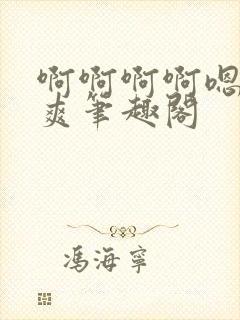 啊啊啊啊嗯
爽笔趣阁
冯海宁